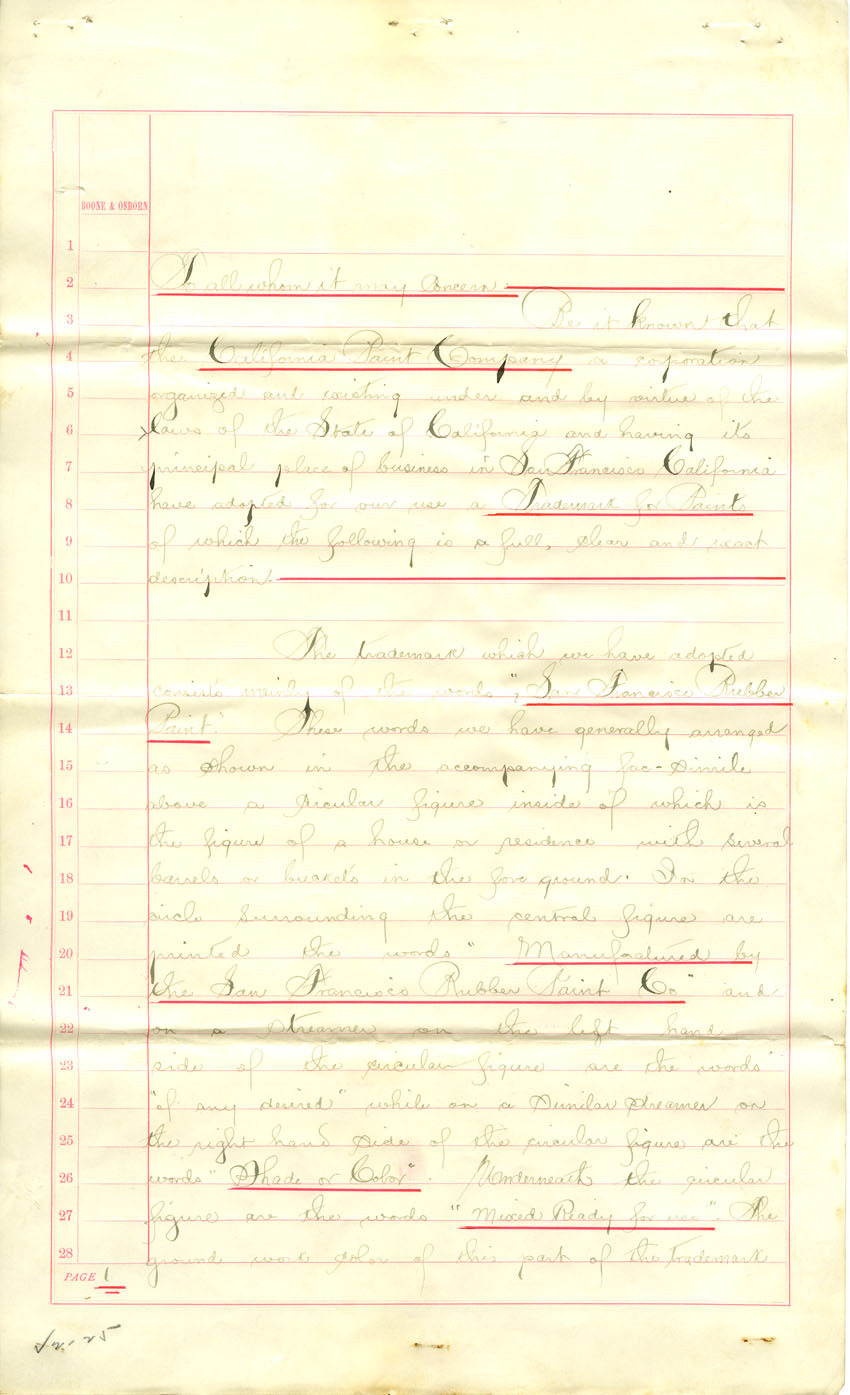 BOONE & OSBORN
1
2 To all whom it may concern:
3 Be it known that
4 the California Paint Company a corporation
5 organized and existing under and by virtue of the
6 laws of the State of California and having its
7 principal place of business in San Francisco California
8 have adopted for our use a Trademark for Paints
9 of which the following is a full, clear and exact
10 description.
11
12 The trademark which we have adopted
13 consists mainly of the words "San Francisco Rubber
14 Paint." These words we have generally arranged
15 as shown in the accompanying fac-simile
16 above a circular figure inside of which is
17 the figure of a house or residence with several
18 barrels or buckets in the fore ground. In the
19 circle surrounding the central figure are
20 printed the words "Manufactured by
21 the San Francisco Rubber Paint Co" and
22 on a streamer on the left hand
23 side of the circular figure are the words"
24 "of any desired" while on a similar streamer on
25 the right hand side of the circular figure are the
26 words "Shade or Color". Underneath the circular
27 figure are the words "Mixed Ready for use". The
28 ground work color of this part of the Trademark
PAGE 1